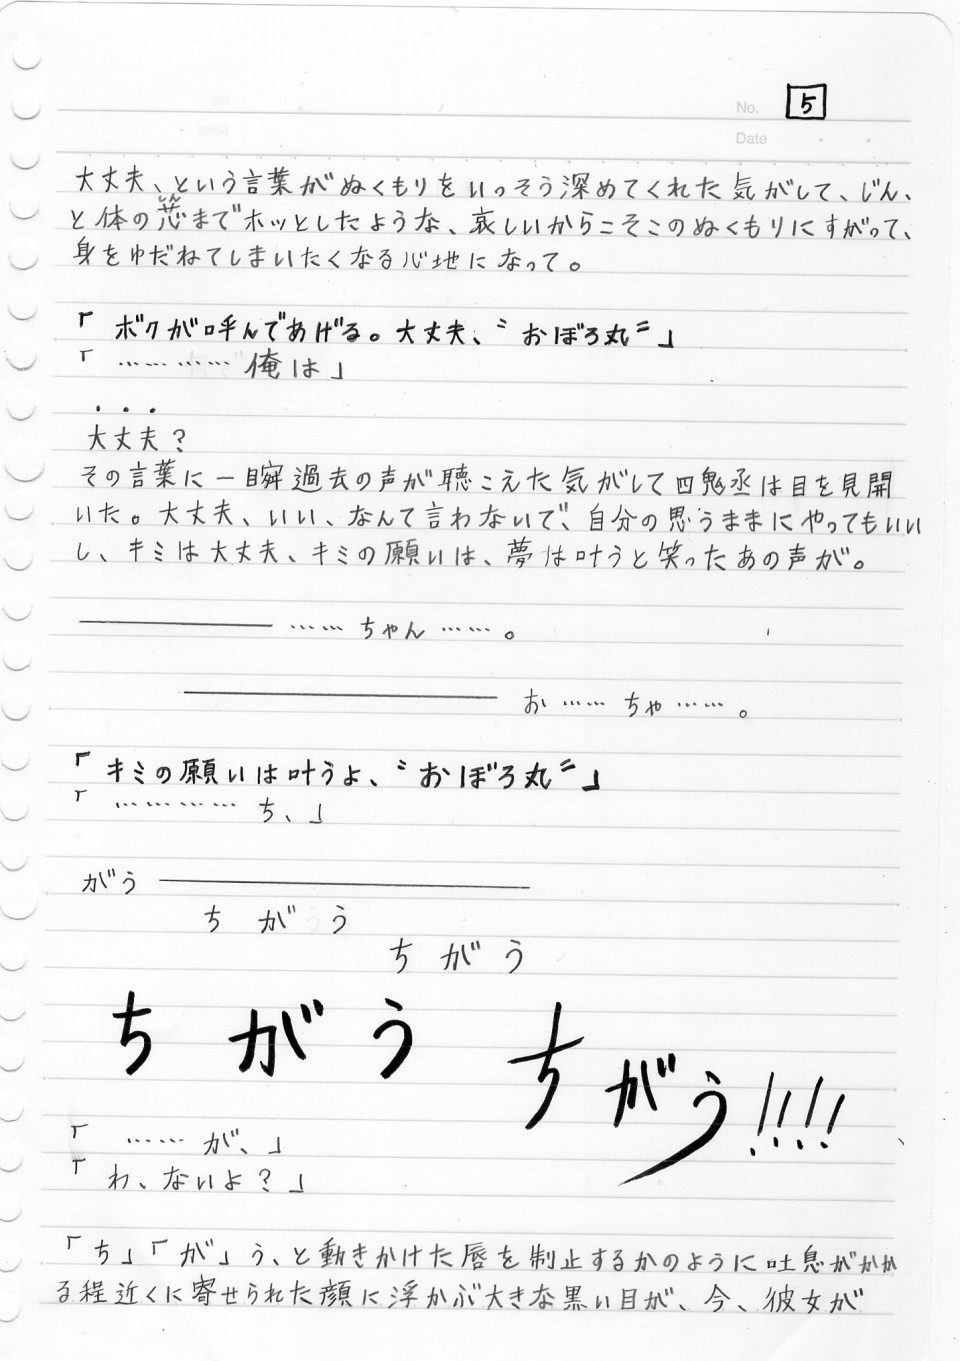 No. 5
Date
大丈夫、という言葉がぬくもりをいっそう深めてくれた気がして、じん、
と体の芯までホッとしたような、哀しいからこそこのぬくもりにすがって、
しん
身をゆだねてしまいたくなる心地になって。
「ボクが呼んであげる。大丈夫、〝おぼろ丸〟」
「…… …… 俺は」
・・・
大丈夫?
その言葉に一瞬過去の声が聴こえた気がして四鬼丞は目を見開
いた。大丈夫、いい、なんて言わないで、自分の思うままにやってもいい
し、キミは大丈夫、キミの願いは、夢は叶うと笑ったあの声が。
―――――― …… ちゃん ……。
―――――― お …… ちゃ ……。
「キミの願いは叶うよ、〝おぼろ丸〟」
「………… ち、」
がう ――――――
ちがう
ちがう
ちがう ちがう!!!!
「…… が、」
「わ、ないよ?」
「ち」「が」う、と動きかけた唇を制止するかのように吐息がかか
る程近くに寄せられた顔に浮かぶ大きな黒い目が、今、彼女が